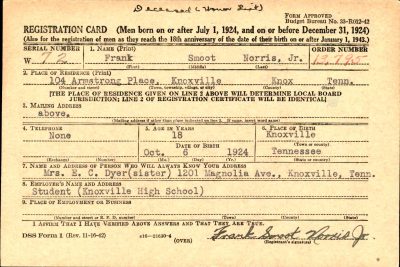 Deceased (Honor List)
Form Approved
Budget Bureau No. 33-R012-42
REGISTRATION CARD (Men born on or after July 1, 1924, and on or before December 31, 1924)
(Also for the registration of men as they reach the 18th anniversary of the date of their birth on or after January 1, 1943.)
SERIAL NUMBER 1. NAME (Print) ORDER NUMBER
W Frank Smoot Norris, Jr.
(First) (Middle) (Last)
2. PLACE OF RESIDENCE (Print)
104 Armstrong Place, Knoxville Knox Tenn.
(Number and street) (Town, township, village, or city) (County) (State)
[THE PLACE OF RESIDENCE GIVEN ON LINE 2 ABOVE WILL DETERMINE LOCAL BOARD
JURISDICTION; LINE 2 OF REGISTRATION CERTIFICATE WILL BE IDENTICAL]
3. MAILING ADDRESS
above.
[Mailing address if other than place indicated on line 2. If same, insert word same]
4. TELEPHONE 5. AGE IN YEARS 6. PLACE OF BIRTH
None 18 Knoxville
DATE OF BIRTH (Town or county)
Oct. 6 1924 Tennessee
(Exchange) (Number) (Mo.) (Day) (Yr.) (State or country)
7. NAME AND ADDRESS OF PERSON WHO WILL ALWAYS KNOW YOUR ADDRESS
Mrs. E. C. Dyer(sister) 1201 Magnolia Ave., Knoxville, Tenn.
8. EMPLOYER'S NAME AND ADDRESS
Student (Knoxville High School)
9. PLACE OF EMPLOYMENT OR BUSINESS
(Number and street or R. F. D. number) (Town) (County) (State)
I AFFIRM THAT I HAVE VERIFIED ABOVE ANSWERS AND THAT THEY ARE TRUE.
DSS Form 1 (Rev. 11-16-42) (OVER) Frank Smoot Norris Jr.
(Registrant's signature)